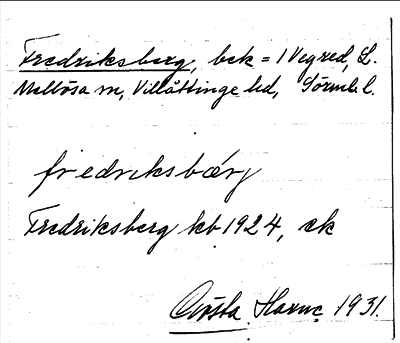 Fredriksberg, bek = 1 Vegred, L.
Mellösa sn, Villåttinge hd, Sörml. l.
fredriksbærj
Fredriksberg kb 1924, ek
Gösta Harne 1931.